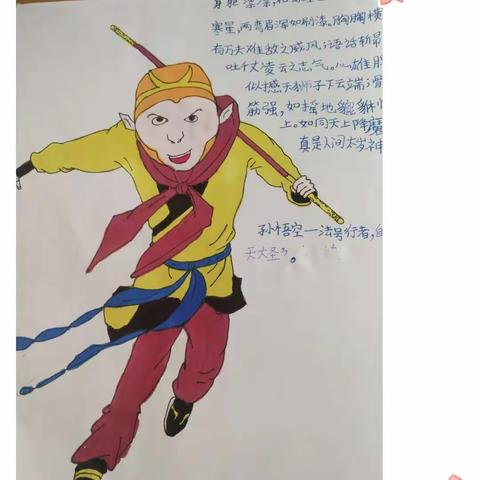 身躯凛凛,相貌堂
寒星,两弯眉浑如刷漆。胸脯横
有万夫难敌之威风,语话轩昂
吐千丈凌云之志气。心雄胆
似撼天狮子下云端;骨
筋强,如摇地貔貅
上。如同天上降魔
真是人间太岁神
孙悟空一法号行者,自
天大圣"。